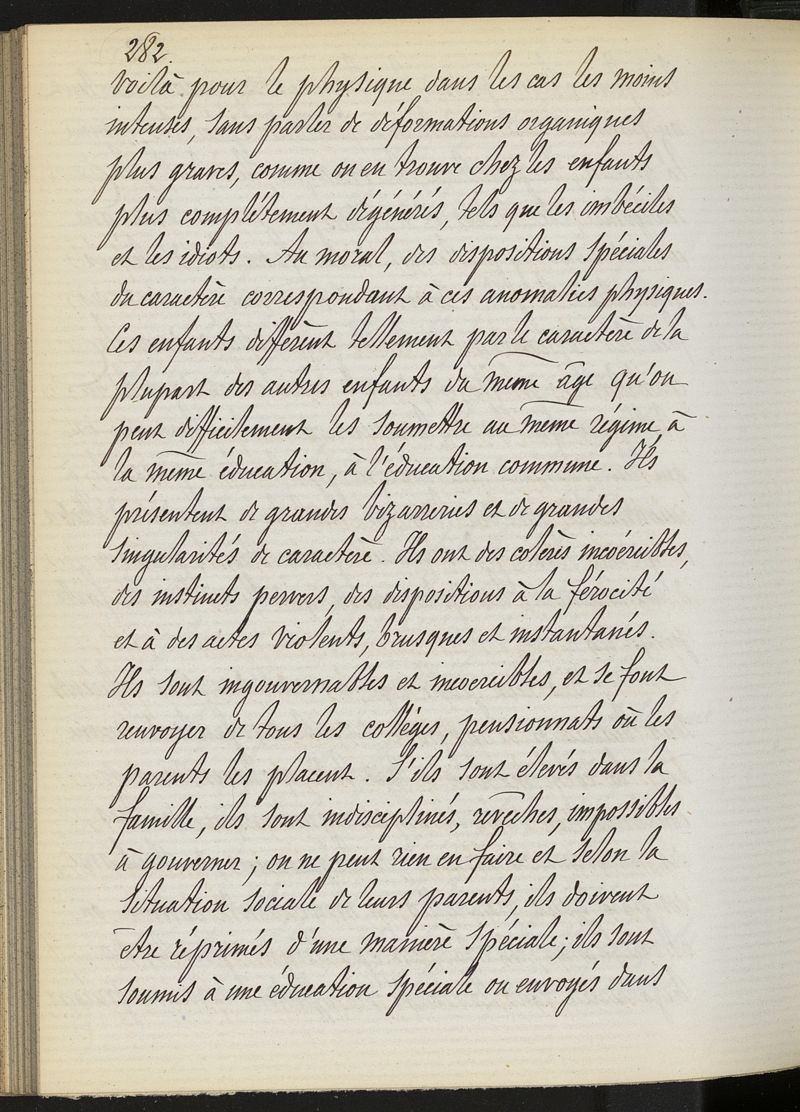 282.
Voilà pour le physique dans les cas les moins
intenses, sans parler de déformations organiques
plus graves, comme on en trouve chez les enfants
plus complétement dégénérés, tels que les imbéciles
et les idiots. Au moral, des dispositions spéciales
du caractère correspondant à ces anomalies physiques.
Ces enfants diffèrent tellement par le caractère de la
plupart des autres enfants du même âge qu'on
peut difficilement les soumettre au même régime, à
la même éducation, à l'éducation commune. Ils
présentent de grandes bizarreries et de grandes
singularités de caractère. Ils ont des colères incoércibles,
des instincts pervers, des dispositions à la férocité
et à des actes violents, brusques et instantanés.
Ils sont ingouvernables et incoercibles, et se font
renvoyer de tous les colléges, pensionnats où les
parents les placent. S'ils sont élevés dans la
famille, ils sont indisciplinés, revêches, impossibles
à gouverner; on ne peut rien en faire et selon la
situation sociale de leurs parents, ils doivent
être réprimés d'une manière spéciale; ils sont
soumis à une éducation spéciale ou envoyés dans